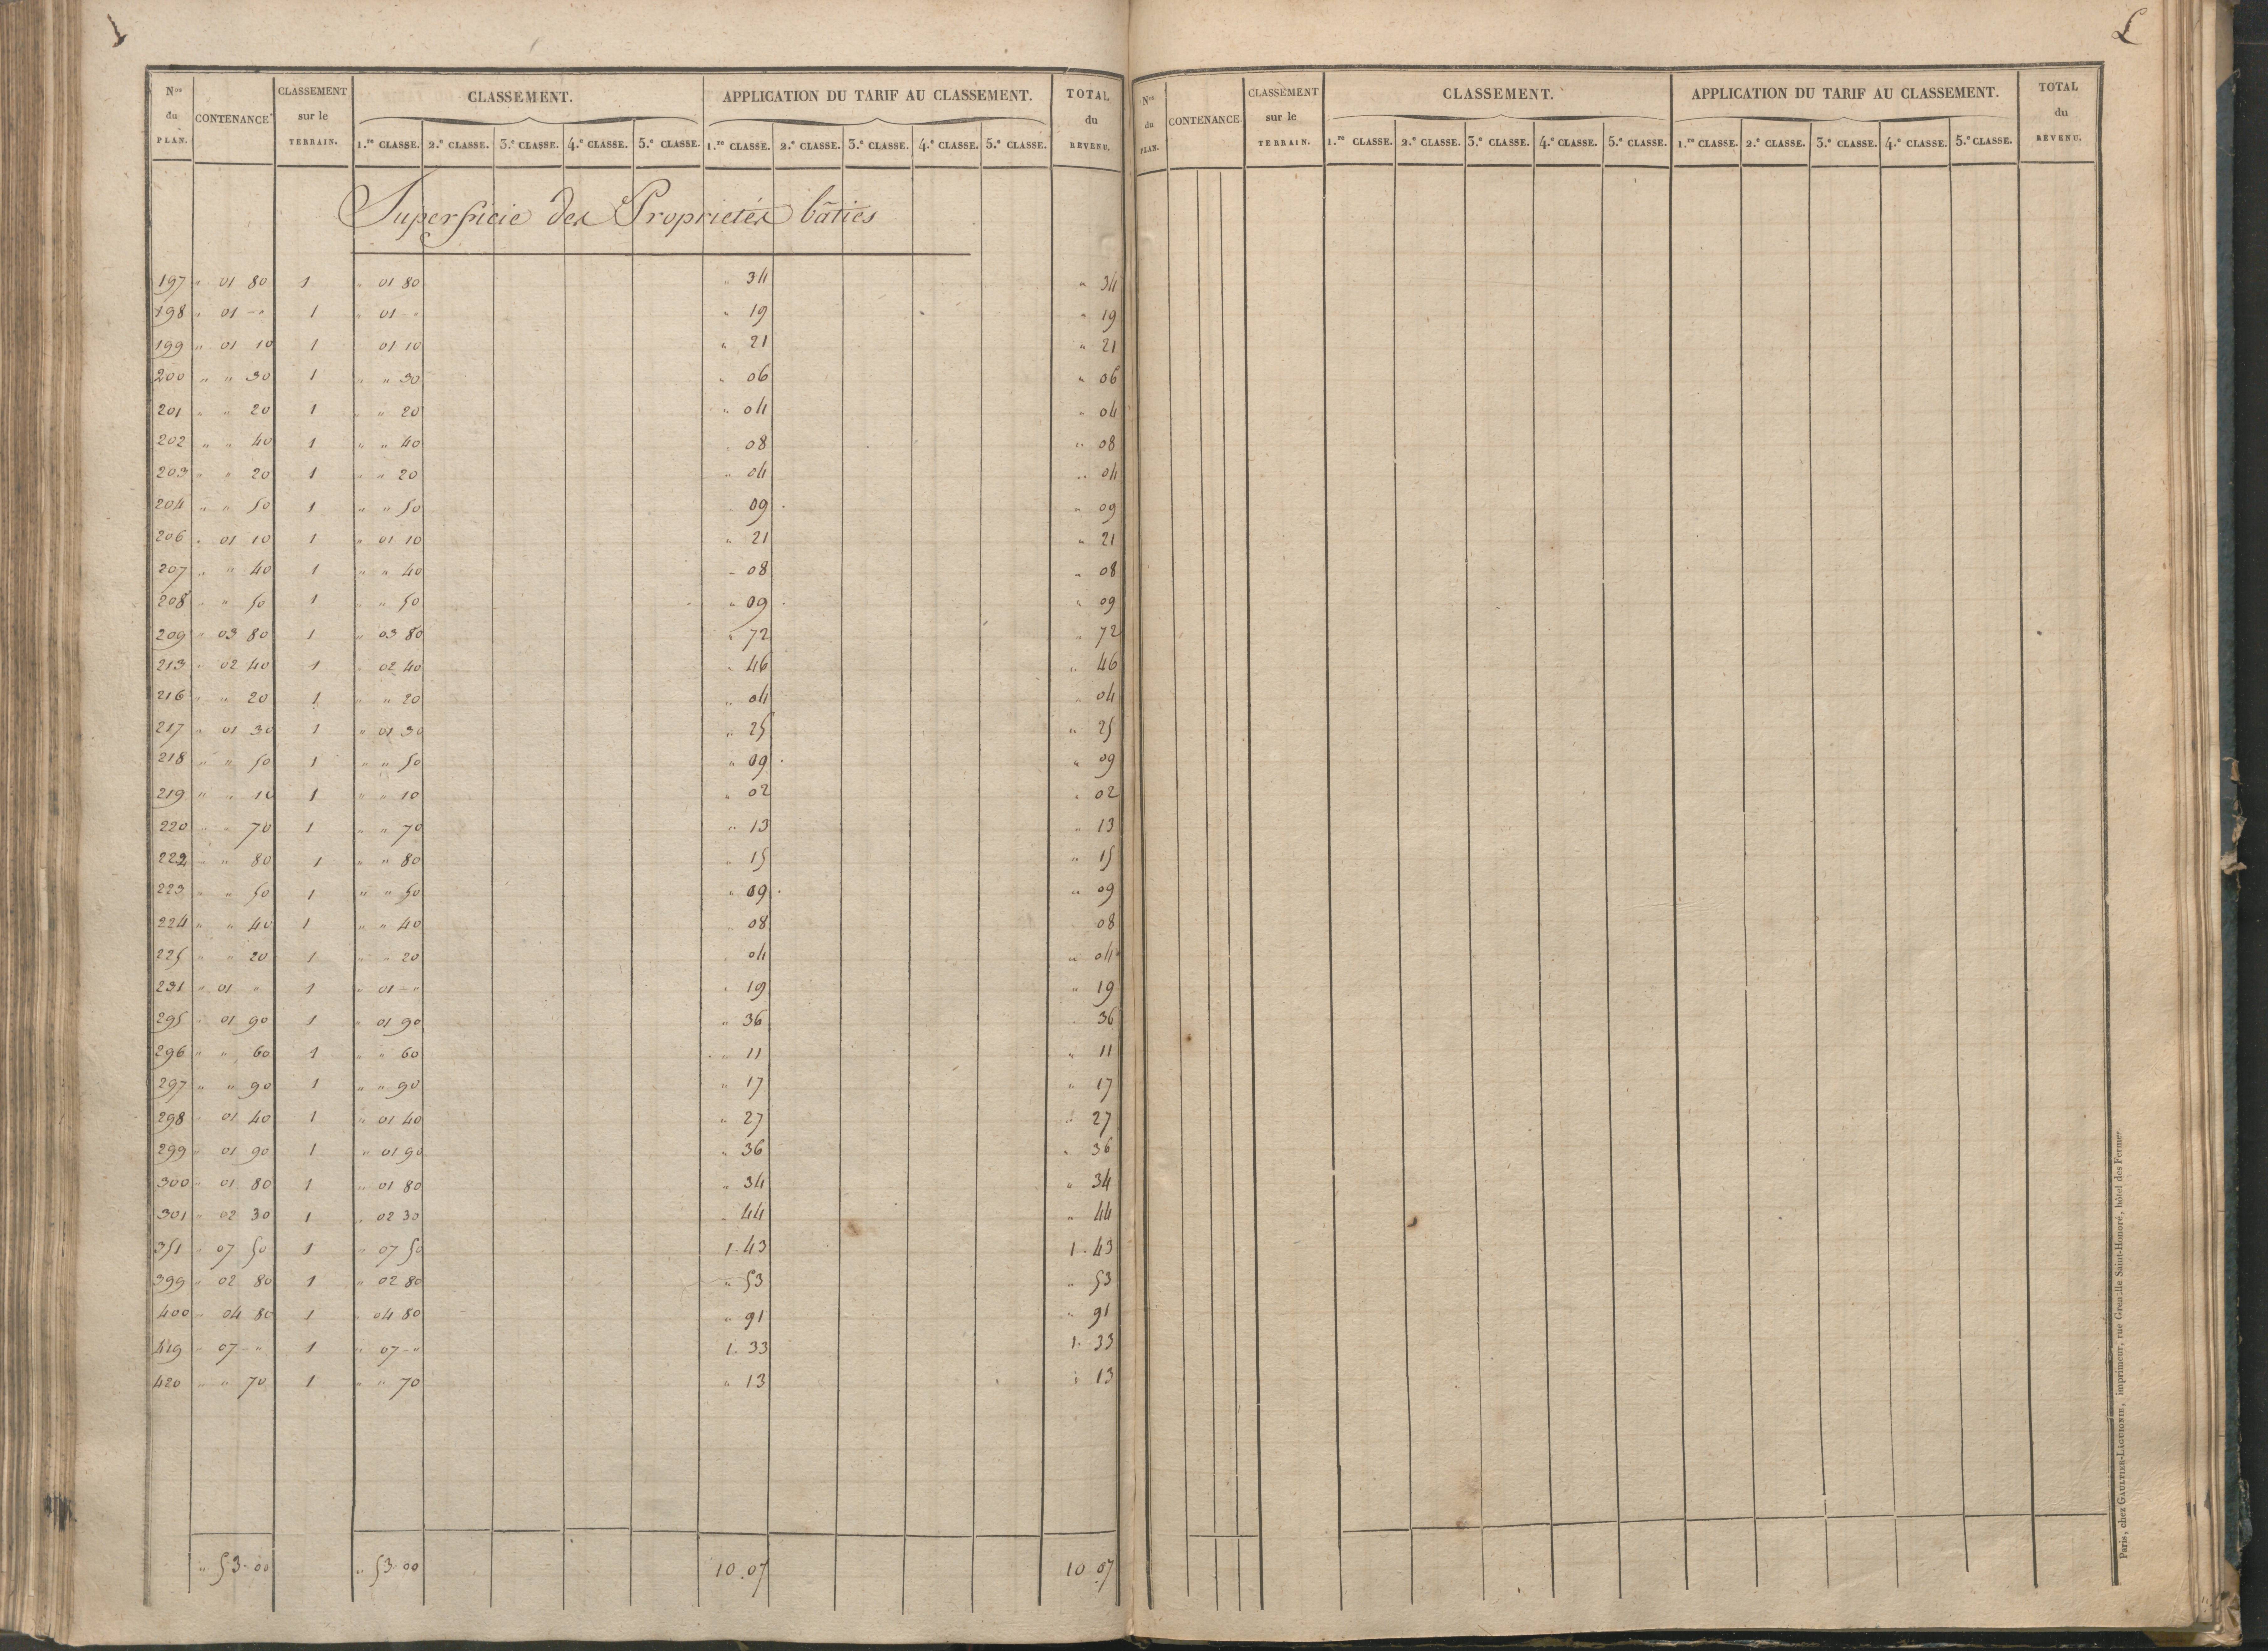 L
N.os du PLAN. CONTENANCE CLASSEMENT sur le TERRAIN. CLASSEMENT. APPLICATION DU TARIF AU CLASSEMENT. TOTAL du REVENU.
1.re CLASSE. 2.e CLASSE. 3.e CLASSE. 4.e CLASSE. 5.e CLASSE. 1.re CLASSE. 2.e CLASSE. 3.e CLASSE. 4.e CLASSE. 5.e CLASSE.
Superficie des Propriétés bâties
197 " 01 80 1 " 01 80 " 34 " 34
198 " 01 - " 1 " 01 - " " 19 " 19
199 " 01 10 1 01 10 " 21 " 21
200 " " 30 1 " " 30 " 06 " 06
201 " " 20 1 " " 20 " 04 " 04
202 " " 40 1 " " 40 " 08 " 08
203 " " 20 1 " " 20 " 04 " 04
204 " " 50 1 " " 50 " 09 " 09
206 " 01 10 1 " 01 10 " 21 " 21
207 " " 40 1 " " 40 " 08 " 08
208 " " 50 1 " " 50 " 09 " 09
209 " 03 80 1 " 03 80 " 72 " 72
213 " 02 40 1 " 02 40 " 46 " 46
216 " " 20 1 " " 20 " 04 " 04
217 " 01 30 1 " 01 30 " 25 " 25
218 " " 50 1 " " 50 " 09 " 09
219 " " 10 1 " " 10 " 02 " 02
220 " " 70 1 " " 70 " 13 " 13
222 " " 80 1 " " 80 " 15 " 15
223 " " 50 1 " " 50 " 09 " 09
224 " " 40 1 " " 40 " 08 08
225 " " 20 1 " " 20 " 04 " 04
231 " 01 " 1 " 01 - " " 19 " 19
295 " 01 90 1 " 01 90 " 36 " 36
296 " " 60 1 " " 60 " 11 " 11
297 " " 90 1 " " 90 " 17 " 17
298 " 01 40 1 " 01 40 " 27 " 27
299 " 01 90 1 " 01 90 " 36 " 36
300 " 01 80 1 " 01 80 " 34 " 34
301 " 02 30 1 " 02 30 " 44 " 44
351 " 07 50 1 " 07 50 1.43 1.43
399 " 02 80 1 " 02 80 " 53 " 53
400 " 04 80 1 " 04 80 " 91 " 91
419 " 07 - " 1 " 07 - " 1.33 1.33
420 " " 70 1 " " 70 " 13 " 13
" 53.00 " 53.00 10.07 10.07
N.os du PLAN. CONTENANCE. CLASSEMENT sur le TERRAIN. CLASSEMENT. APPLICATION DU TARIF AU CLASSEMENT. TOTAL du REVENU.
1.re CLASSE. 2.e CLASSE. 3.e CLASSE. 4.e CLASSE. 5.e CLASSE. 1.re CLASSE. 2.e CLASSE. 3.e CLASSE. 4.e CLASSE. 5.e CLASSE.
Paris, chez GAULTIER-LAGUIONIE, imprimeur, rue Grenelle Saint-Honoré, hôtel des Fermes